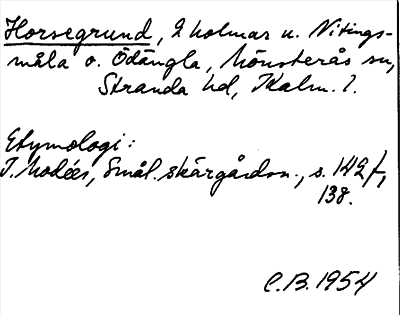 Horsegrund, 2 holmar u. Nitings-
måla o. Ödängla, Mönsterås sn,
Stranda hd, Kalm. l.
Etymologi:
I. Modéer, Smål. skärgårdsn., s. 142 f,
138.
C.B. 1954